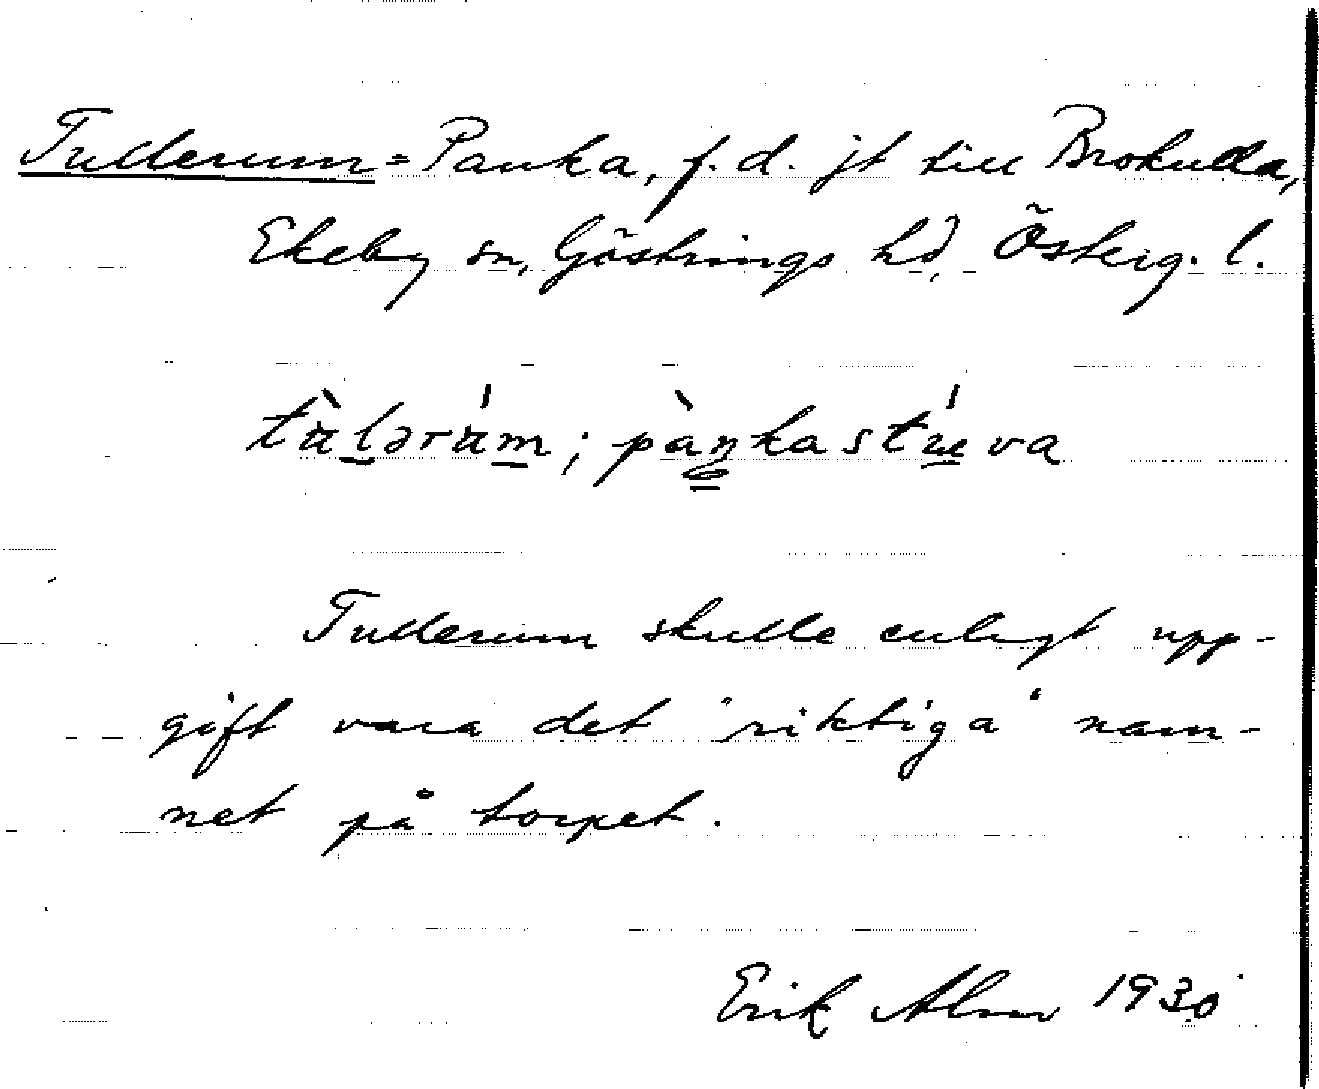 Tullerum = Panka, f. d. jt till Brokulla,
Ekeby sn, Göstrings hd, Österg. l.
tàlərám; pàŋkastúva
Tullerum skulle enligt upp-
gift vara det "riktiga" nam-
net på torpet.
Erik Alm 1930